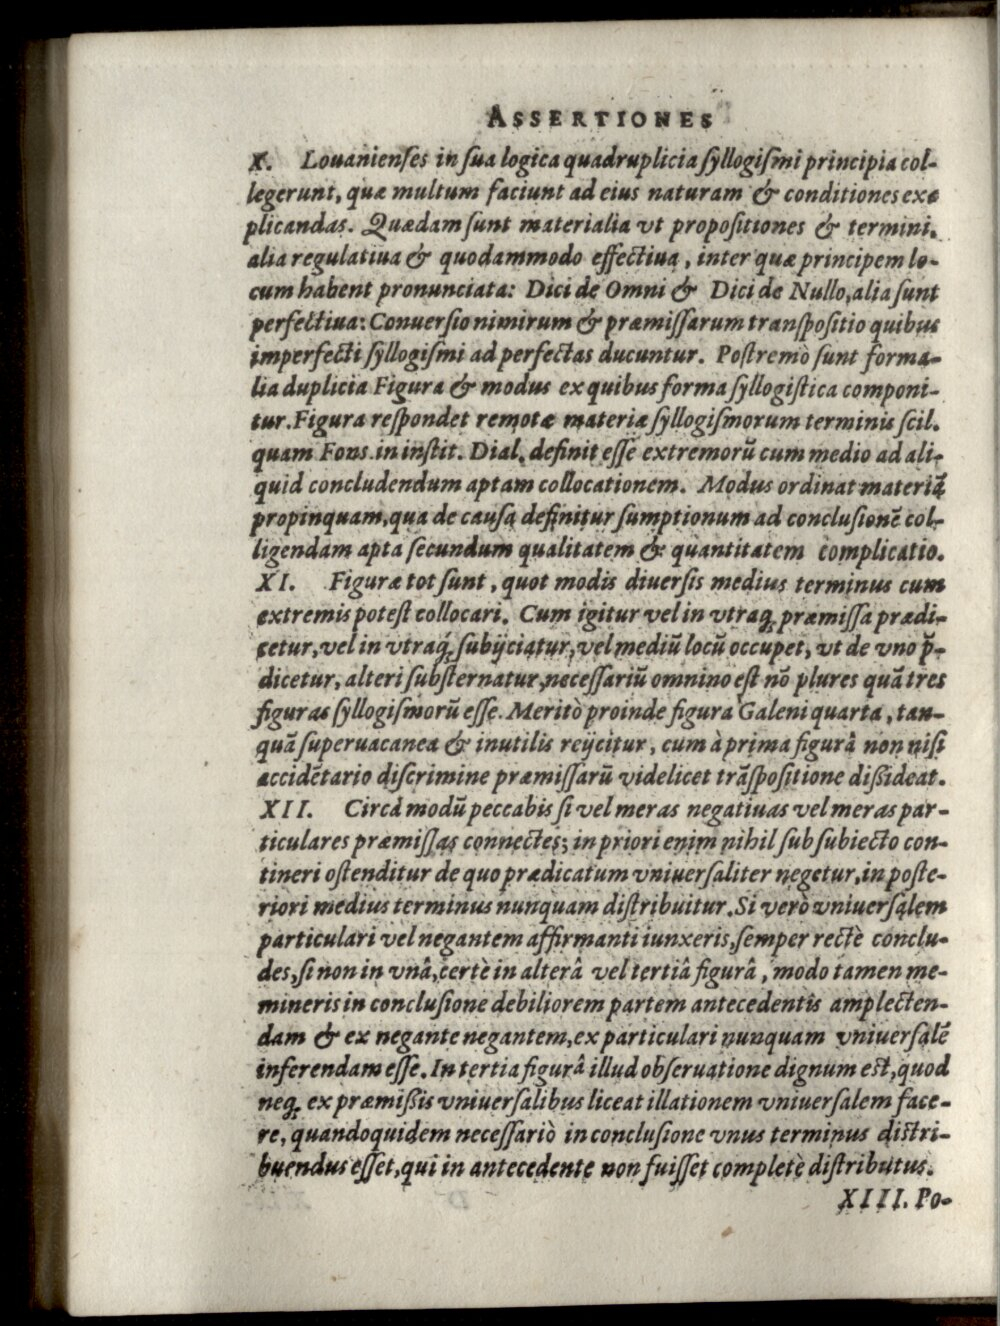 ASSERTIONES
X. Louanienſes in ſua logica quadruplicia ſyllogiſmi principia col-
legerunt, quæ multum faciunt ad eius naturam & conditiones ex-
plicandas. Quædam ſunt materialia vt propoſitiones & termini,
alia regulatiua & quodammodo effectiua, inter quæ principem lo-
cum habent pronunciata: Dici de Omni & Dici de Nullo, alia ſunt
perfectiua: Conuerſio nimirum & præmiſſarum tranſpoſitio quibus
imperfecti ſyllogiſmi ad perfectas ducuntur. Poſtremò ſunt forma-
lia duplicia Figura & modus ex quibus forma ſyllogiſtica componi-
tur. Figura reſpondet remotæ materiæ ſyllogiſmorum terminis ſcil.
quam Fons. in inſtit. Dial. definit eſſe extremorū cum medio ad ali-
quid concludendum aptam collocationem. Modus ordinat materiā
propinquam, qua de cauſa definitur ſumptionum ad concluſionē col-
ligendam apta ſecundum qualitatem & quantitatem complicatio.
XI. Figuræ tot ſunt, quot modis diuerſis medius terminus cum
extremis poteſt collocari. Cum igitur vel in vtraq; præmiſſa prædi-
cetur, vel in vtraq́; ſubijciatur, vel mediū locū occupet, vt de vno p̄-
dicetur, alteri ſubſternatur, neceſſariū omnino eſt nō plures quā tres
figuras ſyllogiſmorū eſſe. Meritò proinde figura Galeni quarta, tan-
quā ſuperuacanea & inutilis reijcitur, cum à prima figurâ non niſi
accidētario diſcrimine præmiſſarū videlicet trāſpoſitione dißideat.
XII. Circà modū peccabis ſi vel meras negatiuas vel meras par-
ticulares præmiſſas connectes; in priori enim nihil ſub ſubiecto con-
tineri oſtenditur de quo prædicatum vniuerſaliter negetur, in poſte-
riori medius terminus nunquam diſtribuitur. Si verò vniuerſalem
particulari vel negantem affirmanti iunxeris, ſemper rectè conclu-
des, ſi non in vnâ, certè in alterâ vel tertiâ figurâ, modo tamen me-
mineris in concluſione debiliorem partem antecedentis amplecten-
dam & ex negante negantem, ex particulari nunquam vniuerſalē
inferendam eſſe. In tertia figurâ illud obſeruatione dignum est, quod
neq; ex præmißis vniuerſalibus liceat illationem vniuerſalem face-
re, quandoquidem neceſſariò in concluſione vnus terminus diſtri-
buendus eſſet, qui in antecedente non fuiſſet completè diſtributus.
XIII. Po-